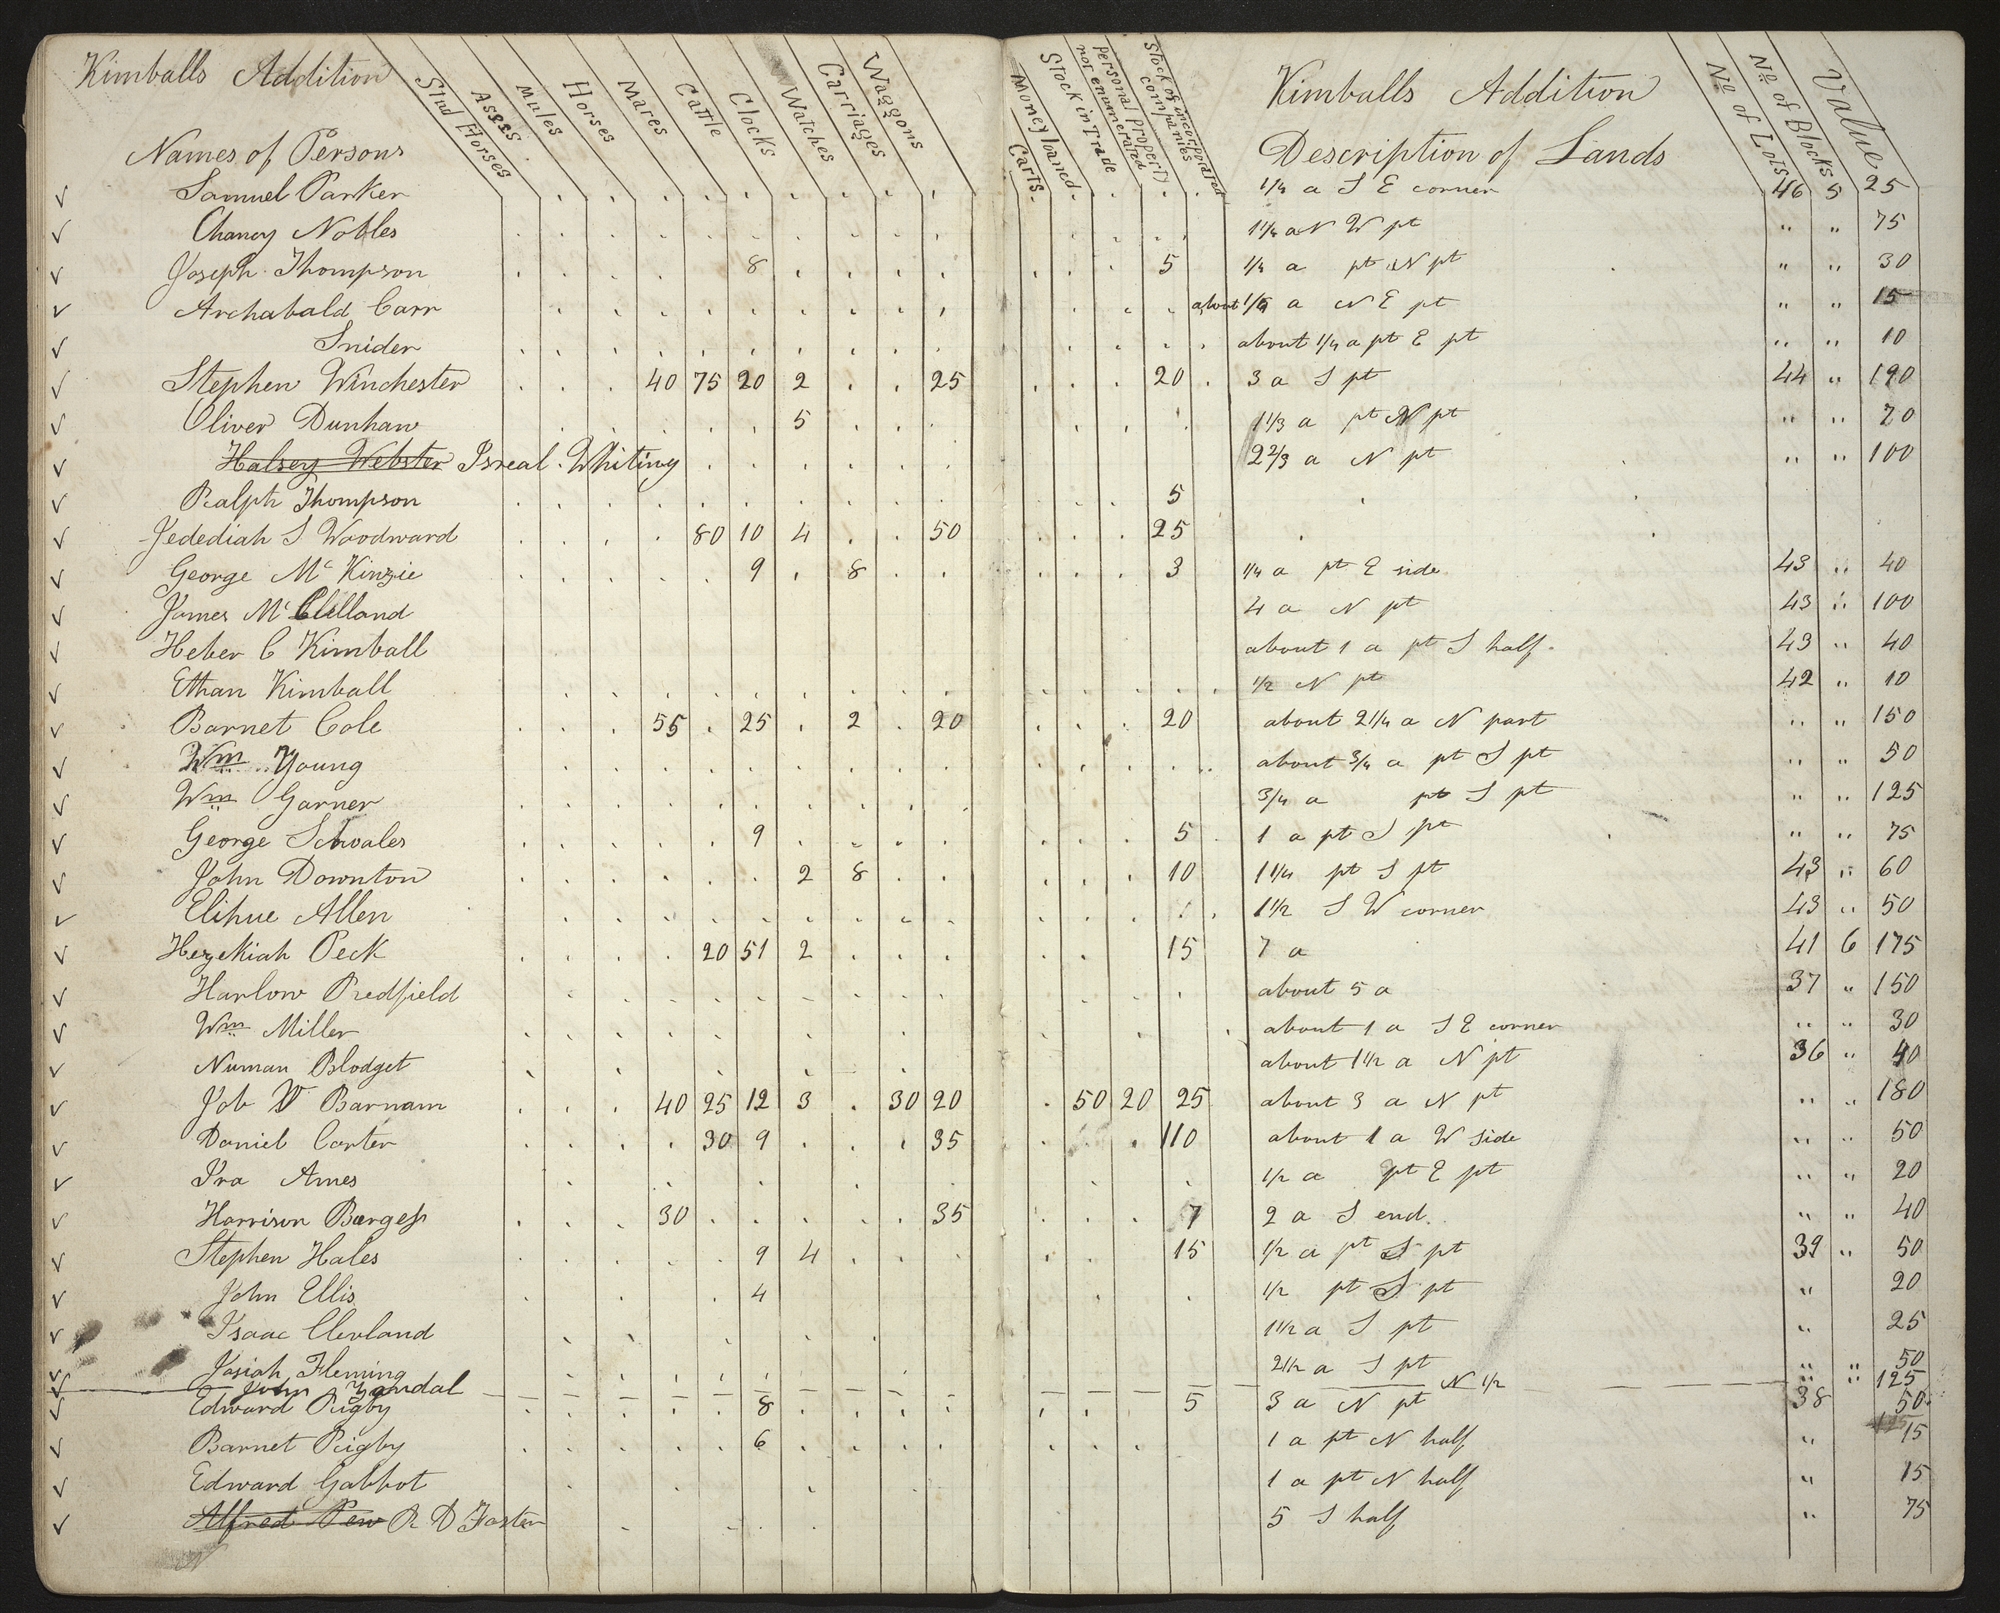 Kimballs Addition
Stud Horses Asses Mules Horses Mares Cattle Clocks Watches Carriages Waggons
Carts Money loaned Stock in Trade Personal property not enumerated Stock of incorporated companies
Kimballs Addition
No of Lots No of Blocks Value
Names of Persons Description of Lands
Samuel Parker 1/4 a S E corner 46 5 25
Chancy Nobles 1 1/4 a N W pt " " 75
Joseph Thompson 8 5 1/4 a pt N pt " " 30
Archabald Carr about a N E pt " " 15
Snider about 1/4 a pt E pt " " 10
Stephen Winchester 40 75 20 2 25 20 3 a S pt 44 " 190
Oliver Dunham 5 1 1/3 a pt N pt " " 70
Halsey Webster Isreal Whiting 2 2/3 a N pt " " 100
Ralph Thompson 5
Jedediah S Woodward 80 10 4 50 25
George Mc Kinzie 9 8 3 1/4 a pt E side 43 " 40
James Mc Clelland 4 a N pt 43 " 100
Heber C Kimball about 1 a pt S half 43 " 40
Ethan Kimball 1/2 N pt 42 " 10
Barnet Cole 55 25 2 20 20 about 2 1/4 a N part " " 150
Wm Young about 3/4 a pt S pt " " 50
Wm Garner 3/4 a pt S pt " " 125
George Scwales 9 5 1 a pt S pt " " 75
John Downton 2 8 10 1 1/4 pt S pt 43 " 60
Elihue Allen 1 1/2 S W corner 43 " 50
Hezekiah Peck 20 51 2 15 7 a 41 6 175
Harlow Redfield about 5 a 37 " 150
Wm Miller about 1 a S E corner " " 30
Numan Blodget about 1 1/2 a N pt 36 " 40
Job V Barnam 40 25 12 3 30 20 50 20 25 about 3 a N pt " " 180
Daniel Carter 30 9 35 110 about 1 a W side " " 50
Ira Ames 1/2 a pt E pt " " 20
Harrison Burgess 30 35 7 2 a S end " " 40
Stephen Hales 9 4 15 1/2 a pt S pt 39 " 50
John Ellis 4 1/2 pt S pt " 20
Isaac Clevland 1 1/2 a S pt " 25
Josiah Fleming 2 1/2 a S pt " " 50
John Yandal N 1/2 " " 125
Edward Rigby 8 5 3 a N pt 38 50
Barnet Rigby 6 1 a pt N half " 15
Edward Gabbot 1 a pt N half " 15
Alfred Pew R D Foster 5 S half " 75